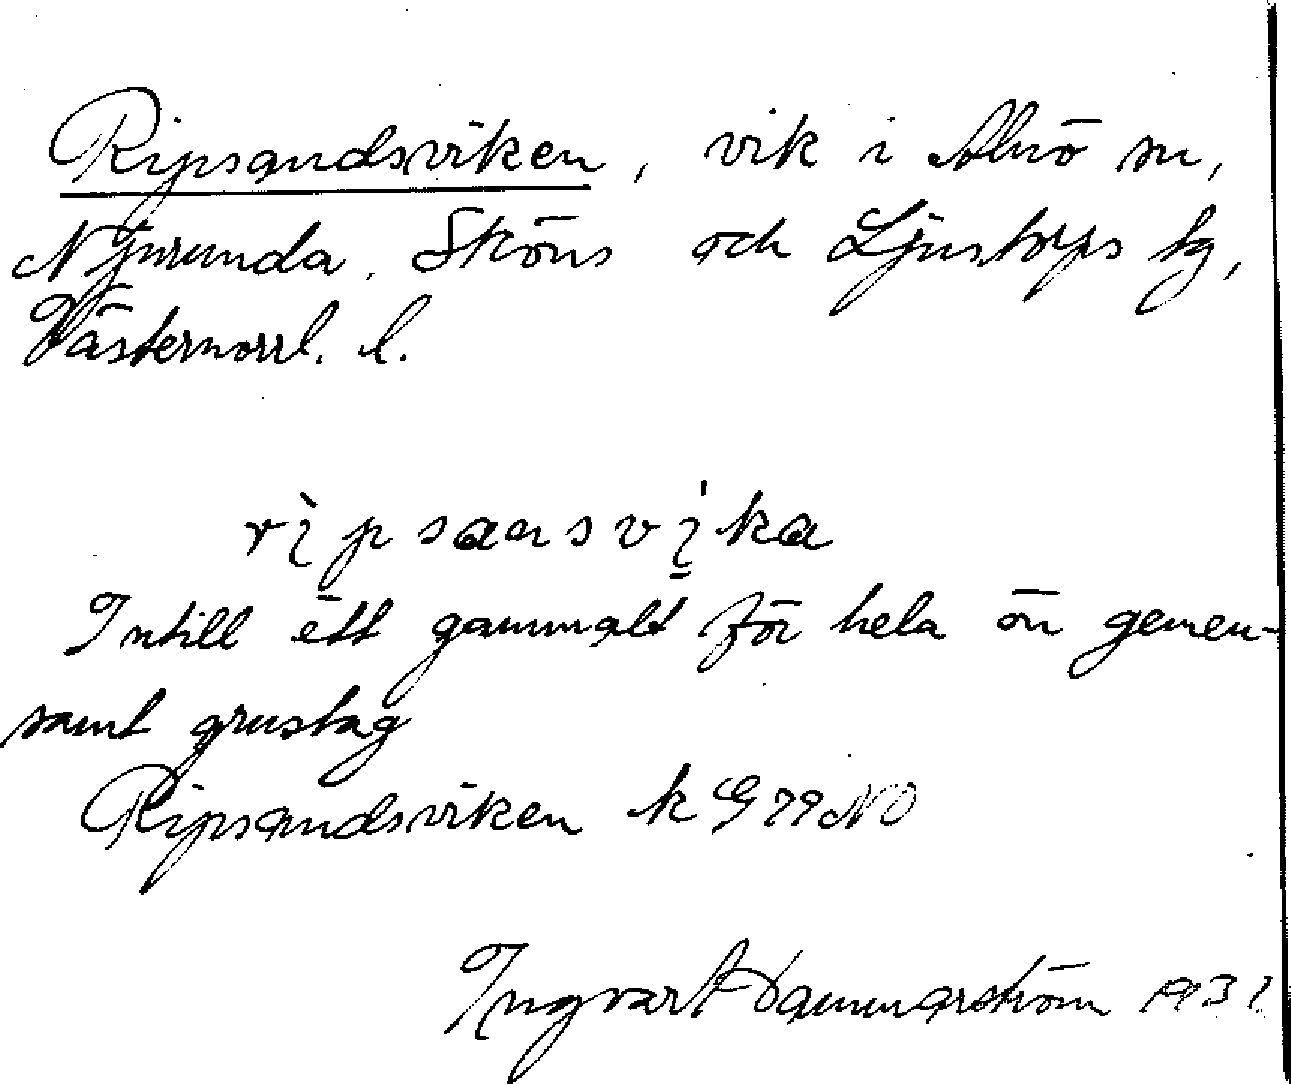 Ripsandsviken, vik i Alnö sn,
Njurunda, Sköns och Ljustorps tg,
Västernorrl. l.
rìpsansvịka
Intill ett gammalt för hela ön gemen-
samt grustag
Ripsandsviken k G 79 NO
Ingvar Hammarström 1931